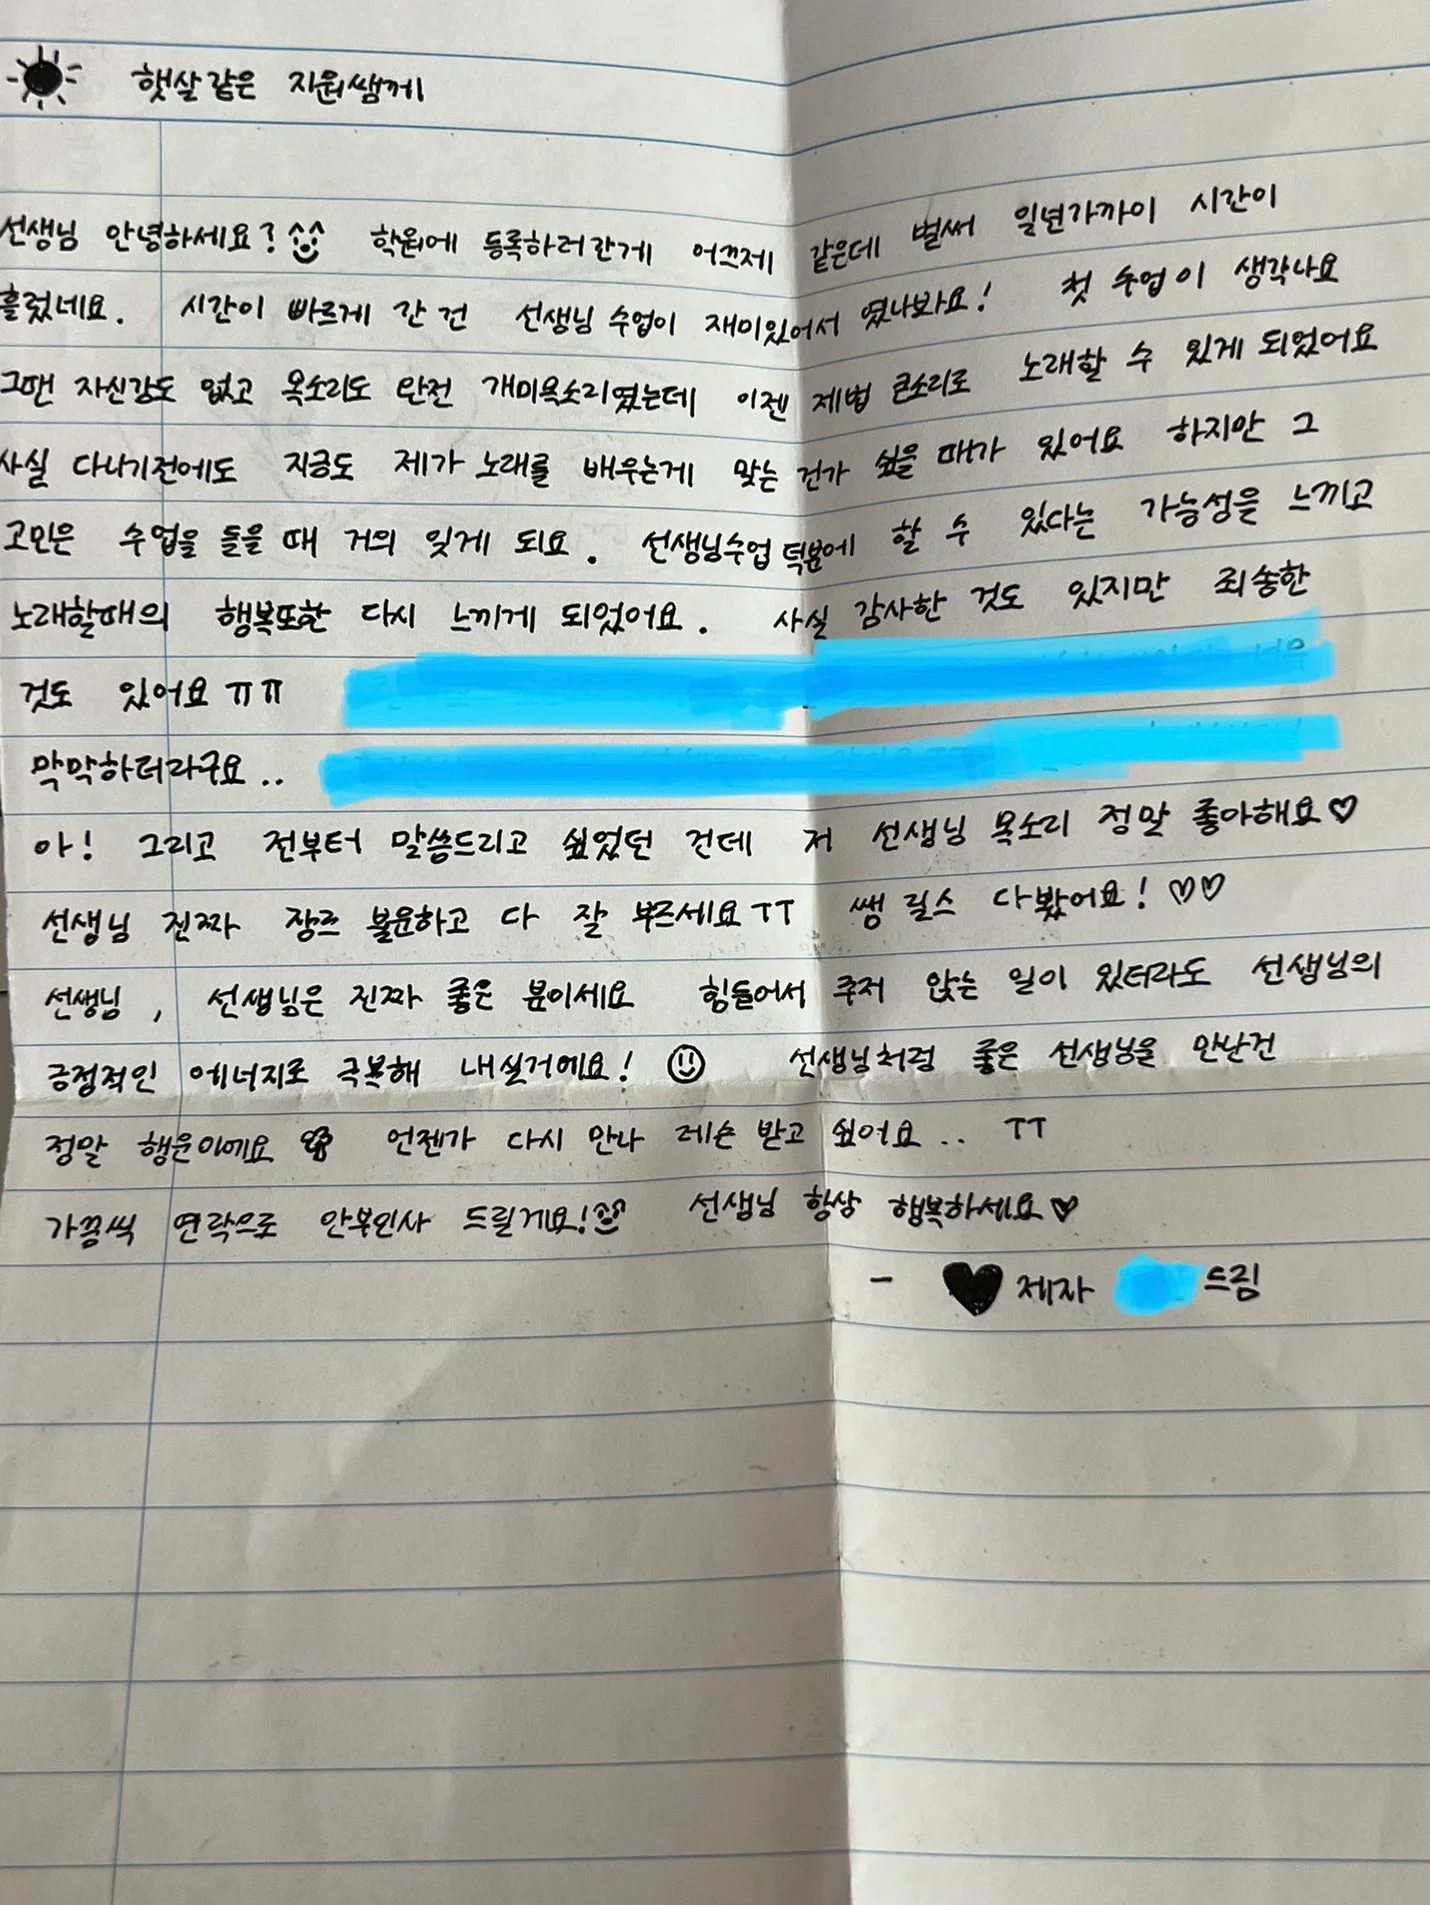 햇살같은 지원쌤께
선생님 안녕하세요? 학원에 등록하러간게 어쯔제 같은데 벌써 일년가까이 시간이
흘렀네요. 시간이 빠르게 간 건 선생님 수업이 재미있어서 였나봐요! 첫 수업이 생각나요
그땐 자신감도 없고 목소리도 완전 개미목소리였는데 이젠 제법 큰소리로 노래할 수 있게 되었어요
사실 다니기전에도 지금도 제가 노래를 배우는게 맞는 건가 싶을 때가 있어요 하지만 그
고민은 수업을 들을 때 거의 잊게 되요. 선생님수업 덕분에 할 수 있다는 가능성을 느끼고
노래할때의 행복또한 다시 느끼게 되었어요. 사실 감사한 것도 있지만 죄송한
것도 있어요 ㅠㅠ
막막하더라구요..
아! 그리고 전부터 말씀드리고 싶었던 건데 저 선생님 목소리 정말 좋아해요♡
선생님 진짜 장르 불문하고 다 잘 부르세요ㅜㅜ 쌤 릴스 다봤어요! ♡♡
선생님, 선생님은 진짜 좋은 분이세요 힘들어서 주저 앉는 일이 있더라도 선생님의
긍정적인 에너지로 극복해 내실거에요! 선생님처럼 좋은 선생님을 만난건
정말 행운이에요 언젠가 다시 만나 레슨 받고 싶어요.. ㅜㅜ
가끔씩 연락으로 안부인사 드릴게요! 선생님 항상 행복하세요♥
- ♥ 제자 드림